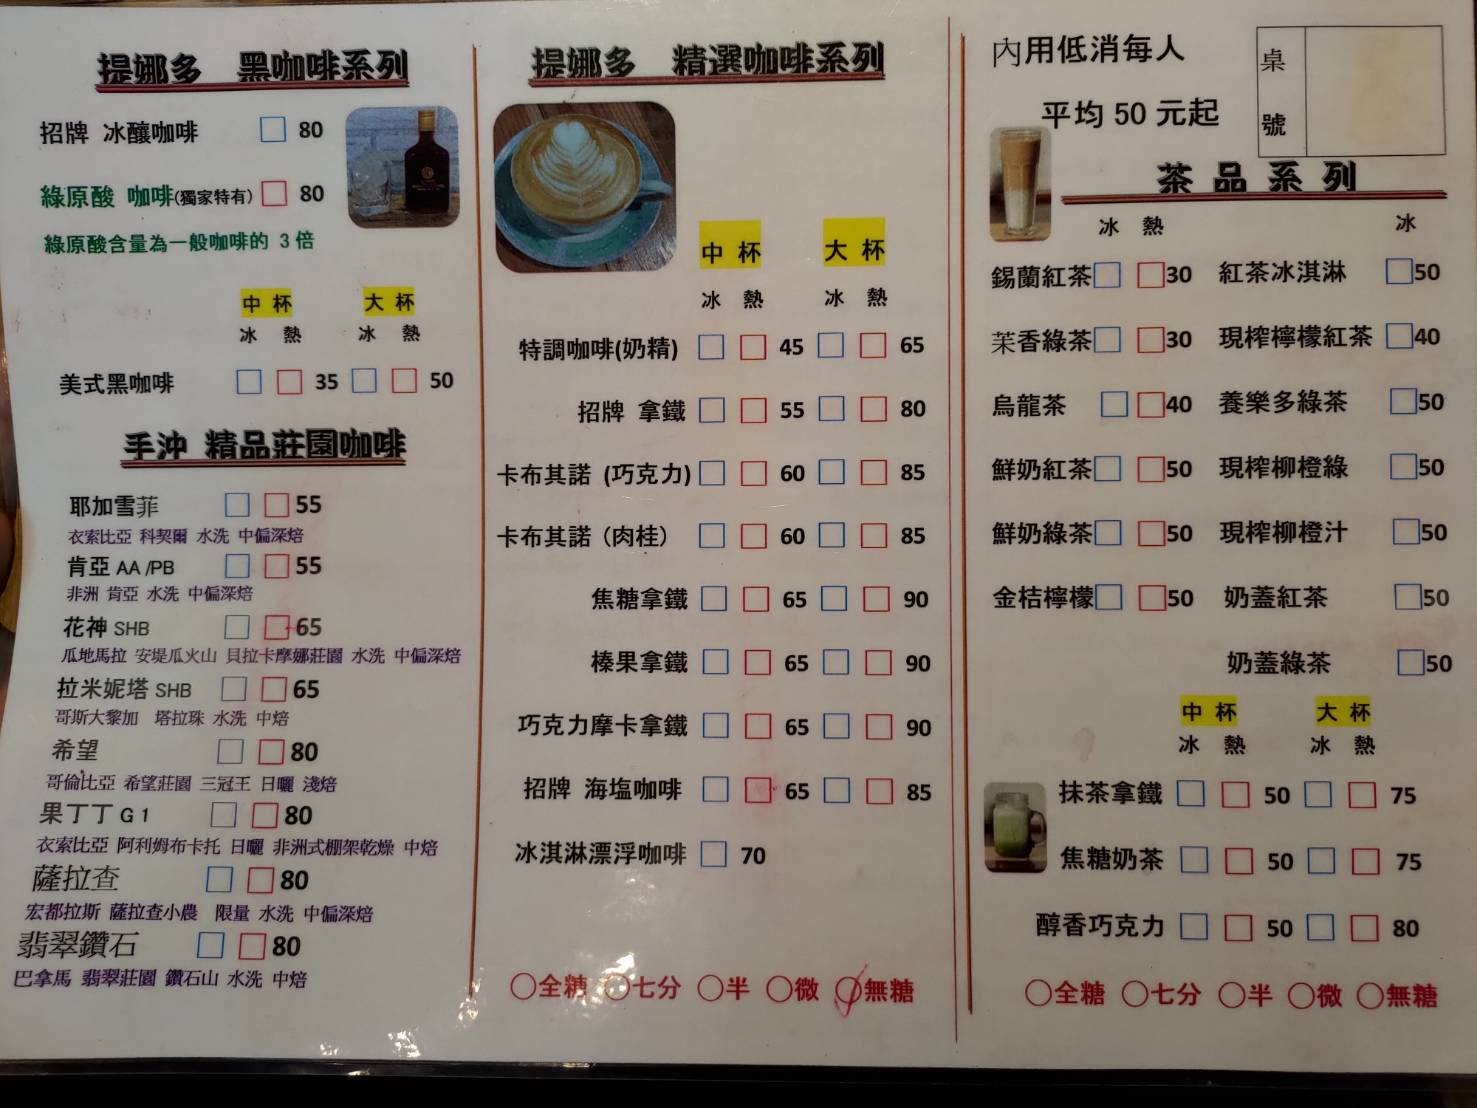 提娜多 黑咖啡系列
招牌 冰釀咖啡 □ 80
綠原酸 咖啡(獨家特有) □ 80
綠原酸含量為一般咖啡的 3 倍
中 杯 大 杯
冰 熱 冰 熱
美式黑咖啡 □ □ 35 □ □ 50
手沖 精品莊園咖啡
耶加雪菲 □ □ 55
衣索比亞 科契爾 水洗 中偏深焙
肯亞 AA /PB □ □ 55
非洲 肯亞 水洗 中偏深焙
花神 SHB □ □ 65
瓜地馬拉 安堤瓜火山 貝拉卡摩娜莊園 水洗 中偏深焙
拉米妮塔 SHB □ □ 65
哥斯大黎加 塔拉珠 水洗 中焙
希望 □ □ 80
哥倫比亞 希望莊園 三冠王 日曬 淺焙
果丁丁 G 1 □ □ 80
衣索比亞 阿利姆布卡托 日曬 非洲式棚架乾燥 中焙
薩拉查 □ □ 80
宏都拉斯 薩拉查小農 限量 水洗 中偏深焙
翡翠鑽石 □ □ 80
巴拿馬 翡翠莊園 鑽石山 水洗 中焙
提娜多 精選咖啡系列
中 杯 大 杯
冰 熱 冰 熱
特調咖啡(奶精) □ □ 45 □ □ 65
招牌 拿鐵 □ □ 55 □ □ 80
卡布其諾 (巧克力) □ □ 60 □ □ 85
卡布其諾 (肉桂) □ □ 60 □ □ 85
焦糖拿鐵 □ □ 65 □ □ 90
榛果拿鐵 □ □ 65 □ □ 90
巧克力摩卡拿鐵 □ □ 65 □ □ 90
招牌 海塩咖啡 □ □ 65 □ □ 85
冰淇淋漂浮咖啡 □ 70
○全糖 ○七分 ○半 ○微 ○無糖
內用低消每人
平均 50 元起
桌
號
茶 品 系 列
冰 熱 冰
錫蘭紅茶□ □30 紅茶冰淇淋 □50
茉香綠茶□ □30 現榨檸檬紅茶 □40
烏龍茶 □ □40 養樂多綠茶 □50
鮮奶紅茶□ □50 現榨柳橙綠 □50
鮮奶綠茶□ □50 現榨柳橙汁 □50
金桔檸檬□ □50 奶蓋紅茶 □50
奶蓋綠茶 □50
中 杯 大 杯
冰 熱 冰 熱
抹茶拿鐵 □ □ 50 □ □ 75
焦糖奶茶 □ □ 50 □ □ 75
醇香巧克力 □ □ 50 □ □ 80
○全糖 ○七分 ○半 ○微 ○無糖